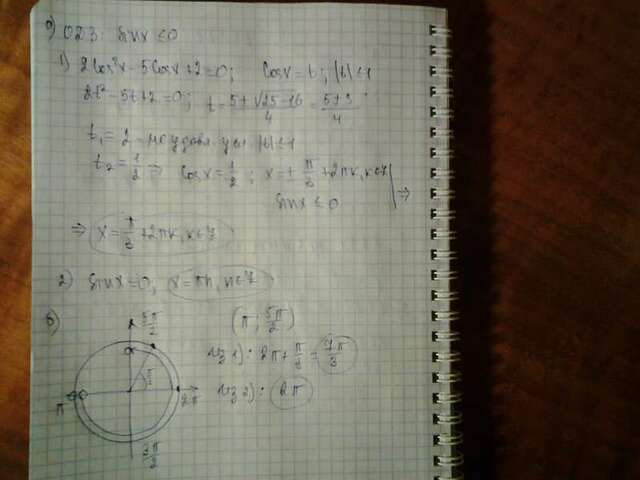 a) ОДЗ: sin x ≤ 0
1) 2cos²x - 5cosx + 2 = 0; cosx = t; |t| ≤ 1
2t² - 5t + 2 = 0; t = (5 ± √25-16)/4 = (5 ± 3)/4;
t₁ = 2 - не удовл. усл. |t| ≤ 1
t₂ = 1/2 ⇒ cosx = 1/2; x = ± π/3 + 2πk, k∈Z
sinx ≤ 0 ⇒
⇒ x = π/3 + 2πk, k∈Z
2) sinx = 0; x = πn, n∈Z
б)
5π/2 (π; 5π/2)
из 1): 2π + π/3 = 7π/3
π/3
π 2π из 2): 2π
3π/2